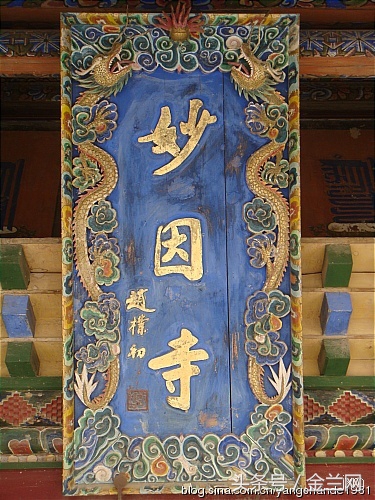 妙因寺
趙樸初
头条号 / 金兰网
blog.sina.com.cn/yangshande1981